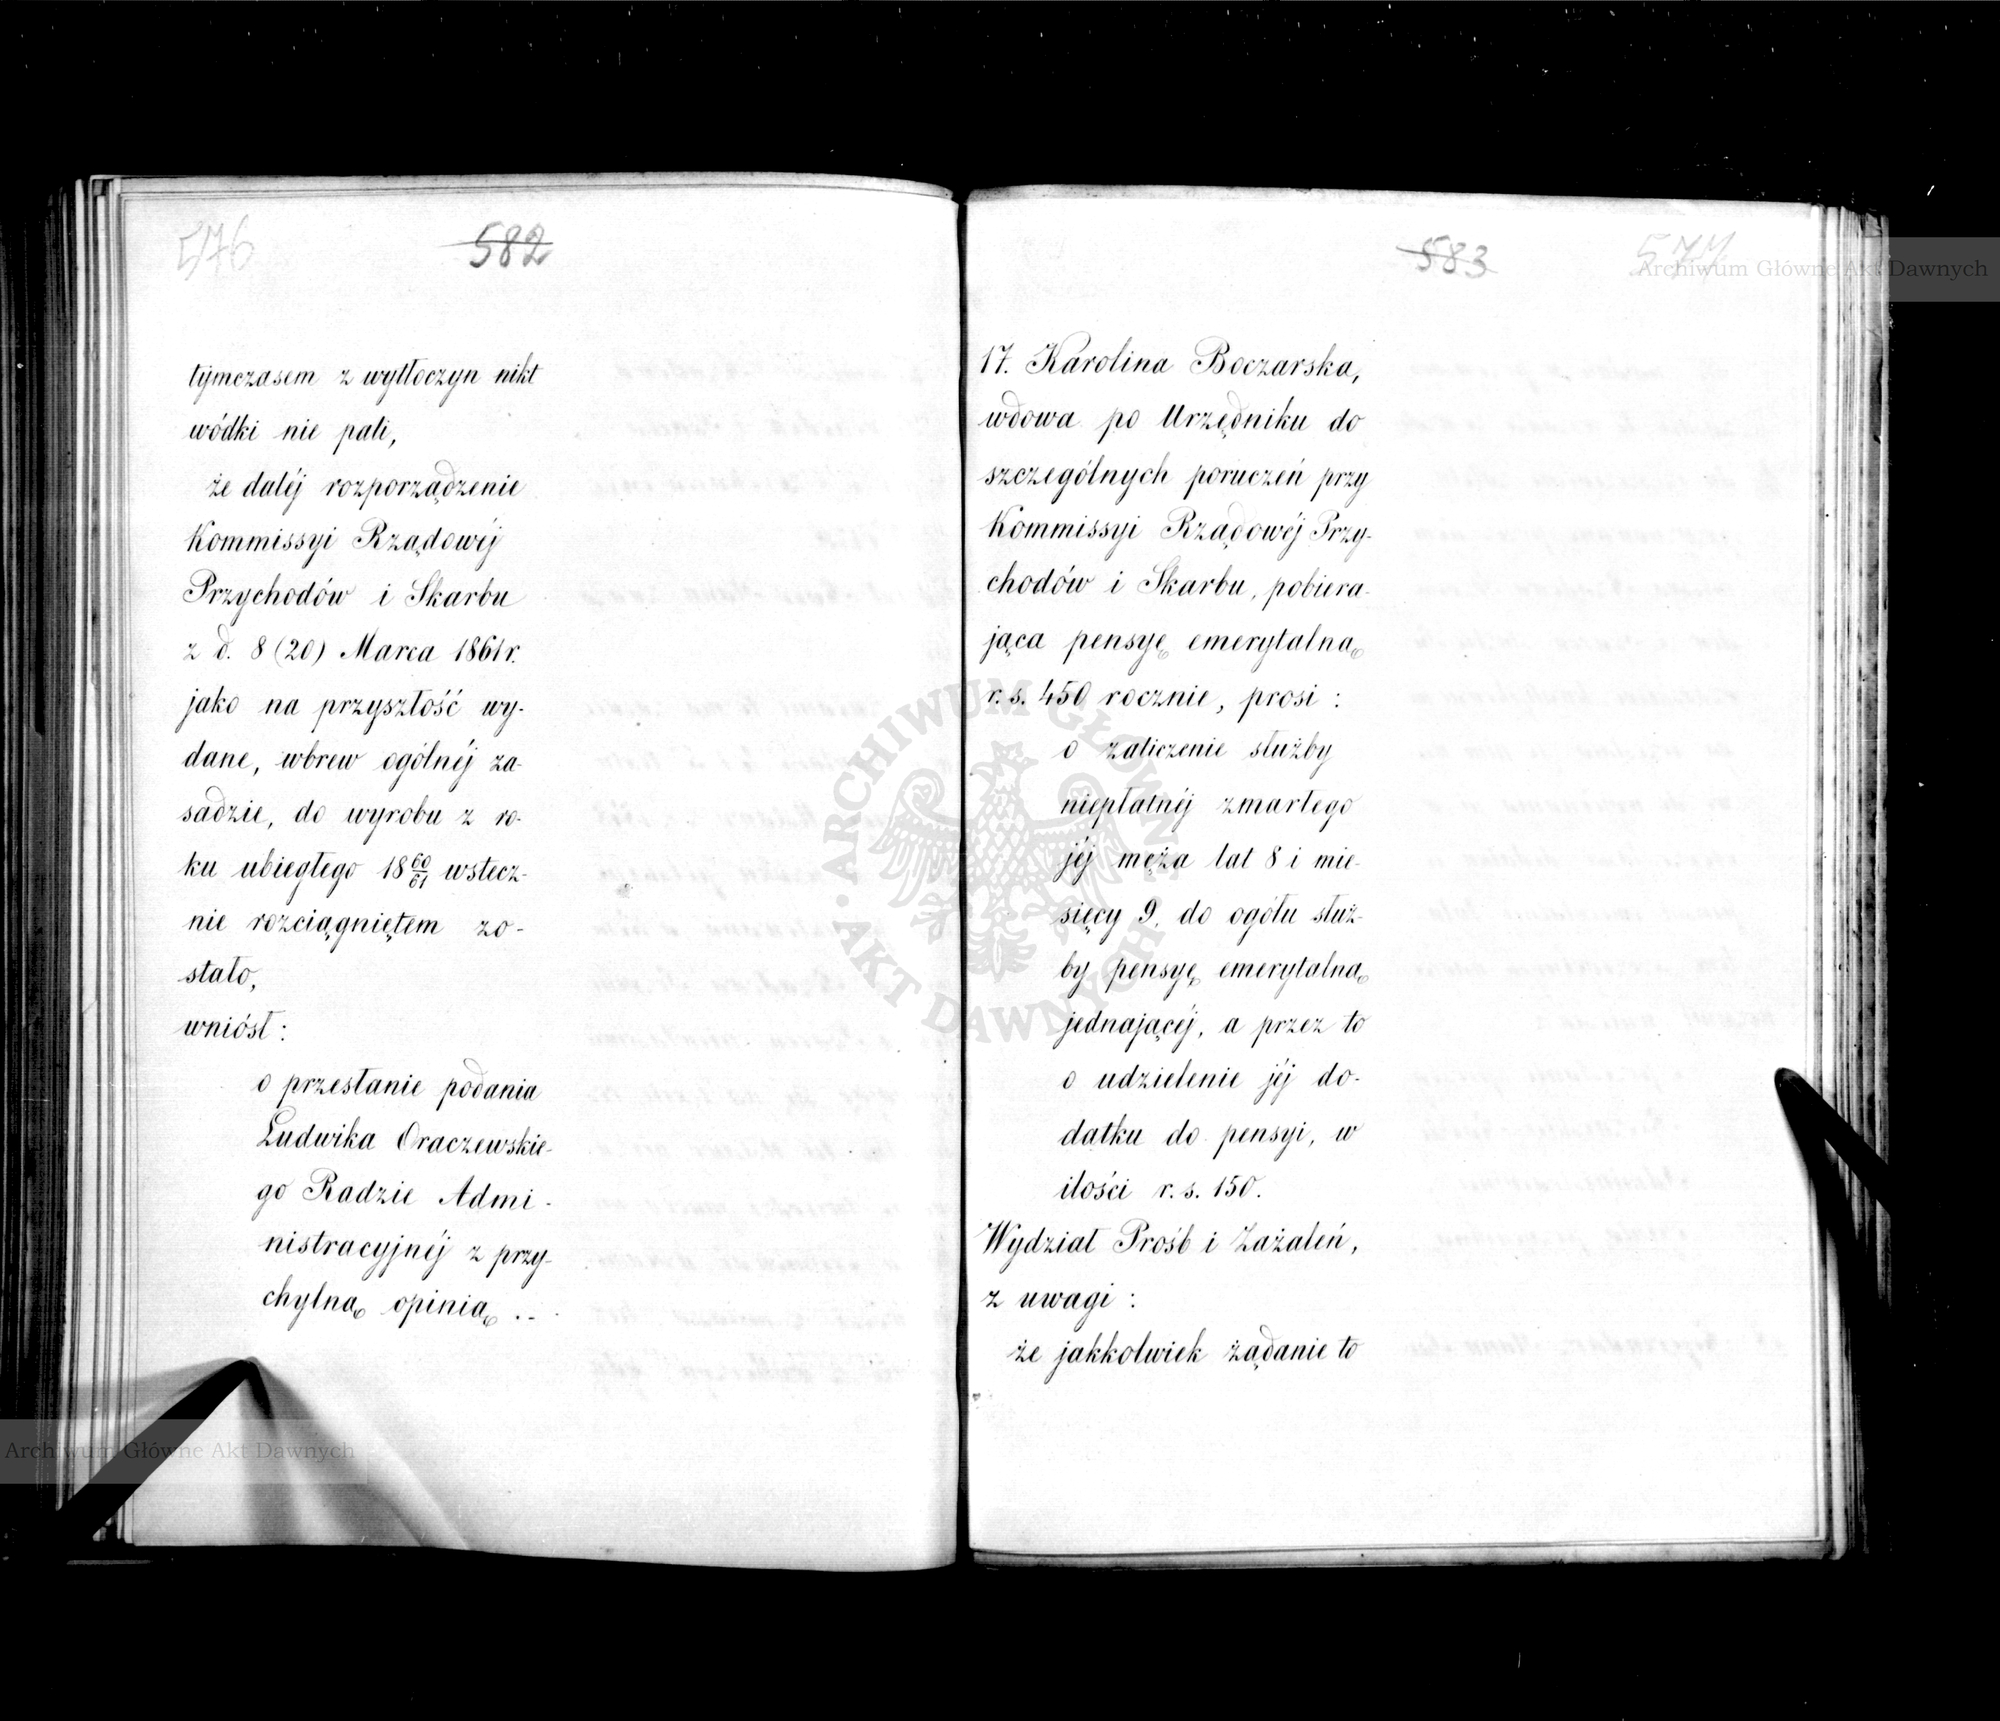 576
582
tymczasem z wytłoczyn nikt
wódki nie pali,
że daléj rozporządzenie
Kommissyi Rządowéj
Przychodów i Skarbu
z d. 8 (20) Marca 1861 r.
jako na przyszłość wy-
dane, wbrew ogólnéj za-
sadzie, do wyrobu z ro-
ku ubiegłego 18 60/61 wstecz-
nie rozciągniętem zo-
stało,
wniósł:
o przesłanie podania
Ludwika Oraczewskie-
go Radzie Admi-
nistracyjnéj z przy-
chylną opinią .-
583
577
17. Karolina Boczarska,
wdowa po Urzędniku do
szczególnych poruczeń przy
Kommissyi Rządowéj Przy-
chodów i Skarbu, pobiera-
jąca pensyę emerytalną
r. s. 450 rocznie, prosi:
o zaliczenie służby
niepłatnéj zmarłego
jéj męża lat 8 i mie-
sięcy 9, do ogółu służ-
by pensyę emerytalną
jednającéj, a przez to
o udzielenie jéj do-
datku do pensyi, w
ilości r. s. 150.
Wydział Prośb i Zażaleń,
z uwagi:
że jakkolwiek żądanie to
Archiwum Główne Akt Dawnych
ARCHIWUM GŁÓWNE • AKT DAWNYCH •
Archiwum Główne Akt Dawnych